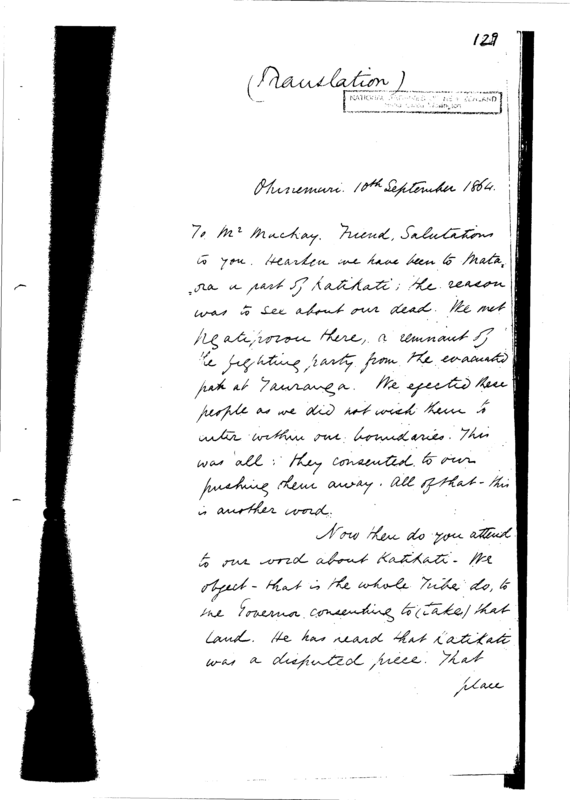 129
(Translation)
NATIONAL ARCHIVES OF NEW ZEALAND
Ohinemuri. 10th September 1864.
To Mr Mackay. Friend, Salutations
to you. Hearken we have been to Mata,
,ora a part of Katikati; the reason
was to see about our dead. We met
Ngatiporou there, a remnant of
the fighting party from the evacuated
pah at Tauranga. We ejected these
people as we did not wish them to
enter within our boundaries. This
was all: they consented to our
pushing them away. All of that - this
is another word.
Now then do you attend
to our word about Katikati - We
object - that is the whole Tribe do, to
the Governor consenting to (take) that
land. He has heard that Katikati
was a disputed piece. That
place